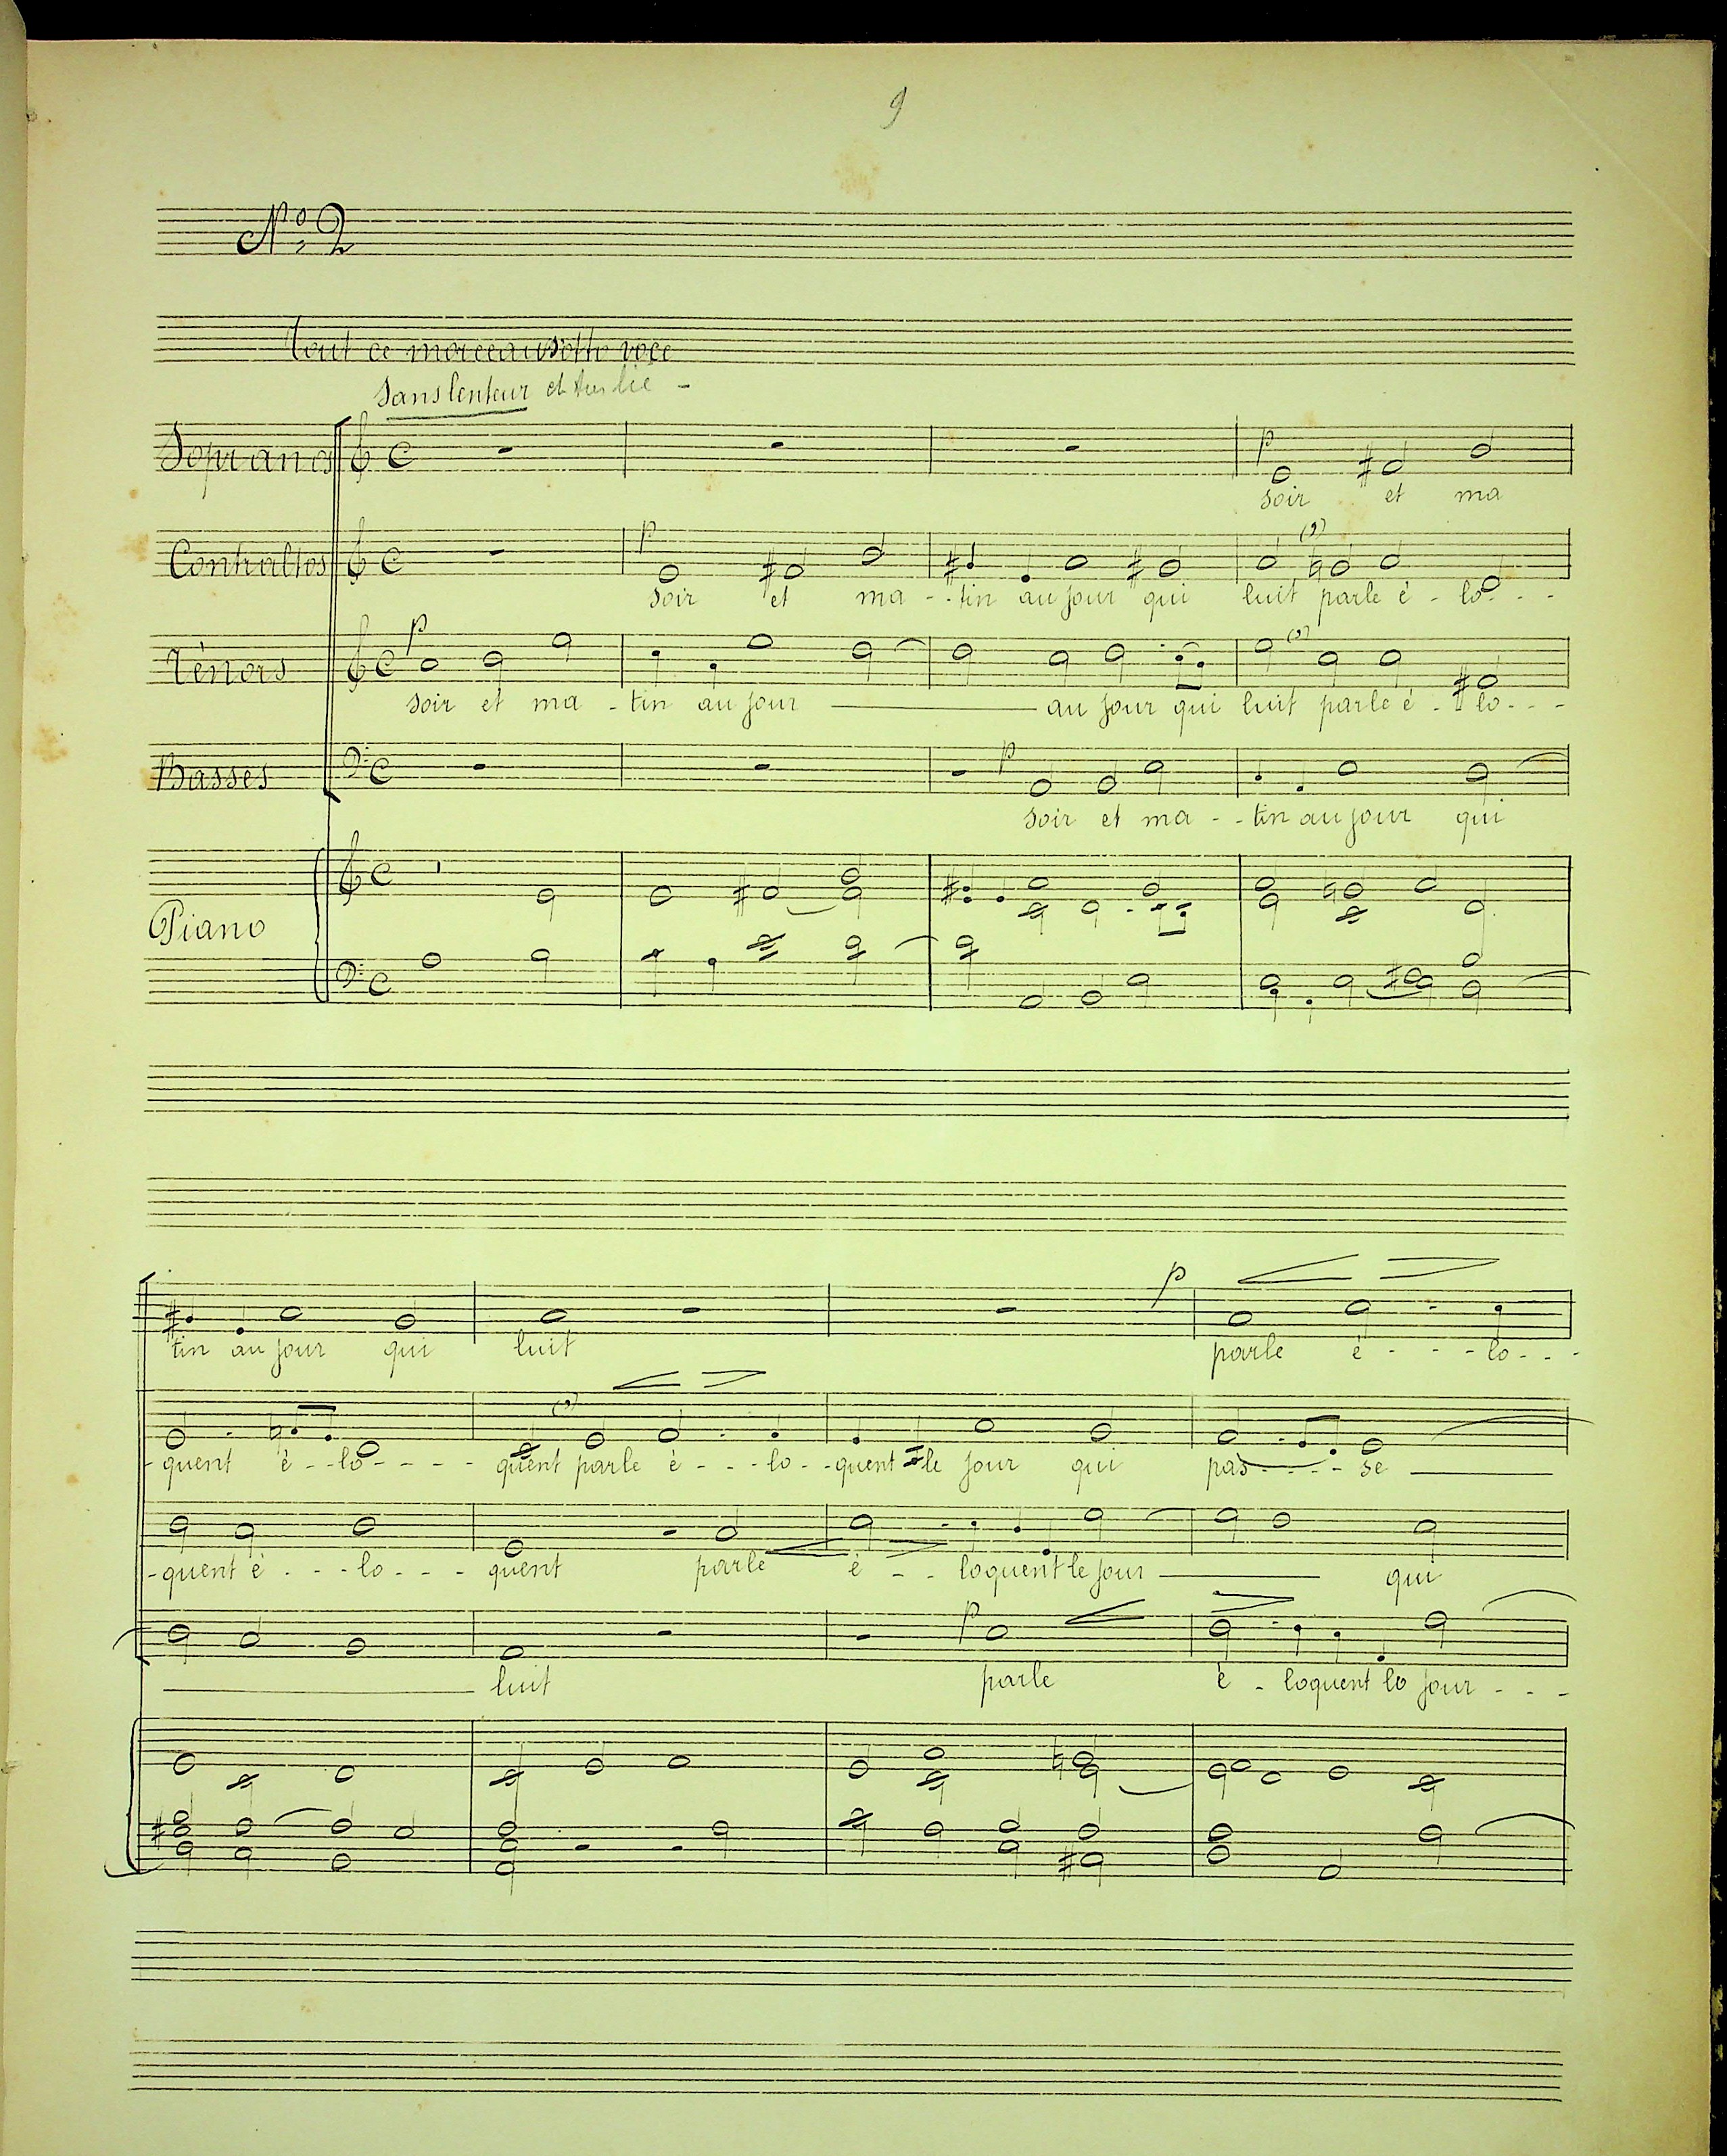 9
Nº 2
Tout ce morceau sotto voce
Sans lenteur et très lié -
Sopranos C p
soir et ma
Contraltos C p (,)
soir et ma - - tin au jour qui luit parle é - lo - - -
Ténors C p (,)
soir et ma - tin au jour au jour qui luit parle é - lo - - -
Basses C p
soir et ma - - tin au jour qui
Piano C
C
p
tin au jour qui luit parle é - - - lo - - -
(,)
- quent é - - lo - - - - quent parle é - - - lo - - quent le jour qui pas - - - - se
- quent é - - - lo - - - quent parle é - - loquent le jour qui
p
luit parle é - loquent le jour - - -